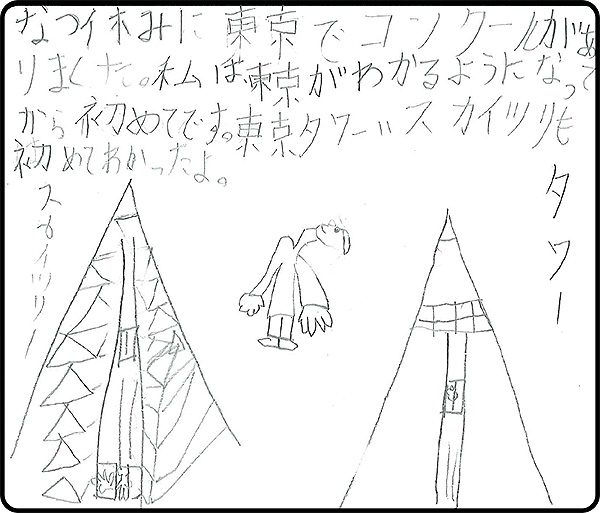 なつ休みに東京でコンクールがあ
りました。私は東京がわかるようになって
から初めてです。東京タワー スカイツリも
初めてわかったよ。
スカイツリー
タワー